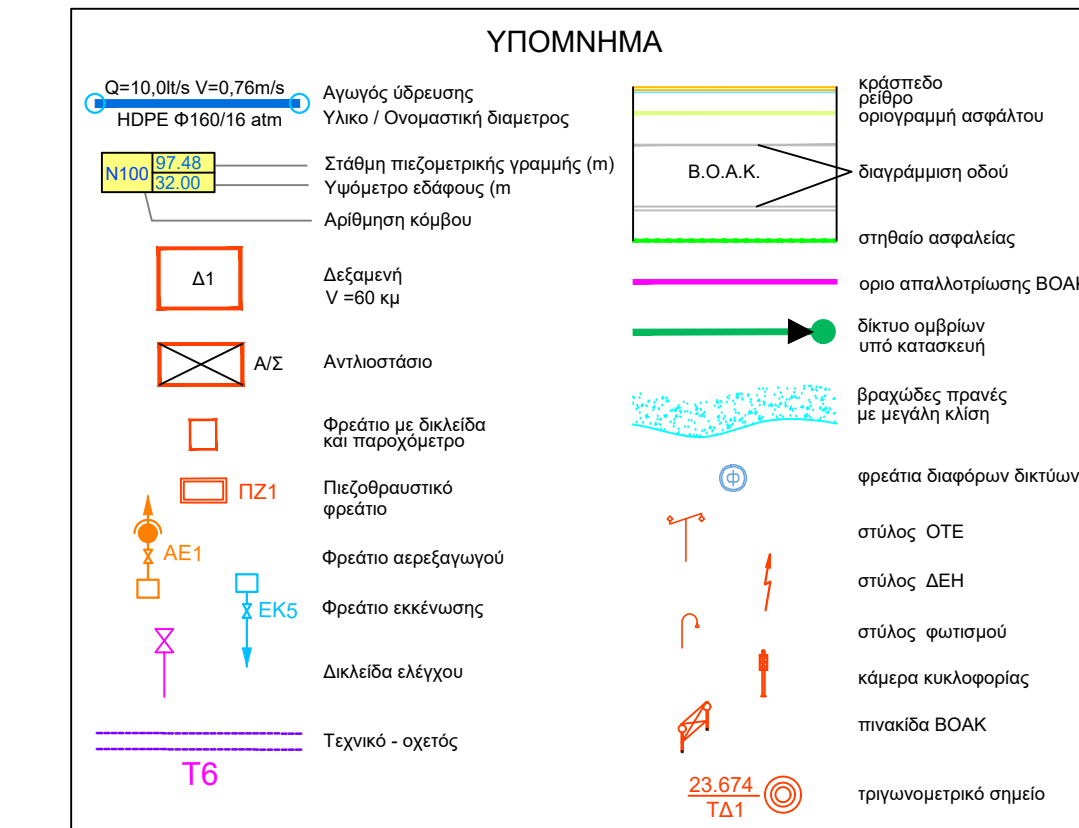 ΥΠΟΜΝΗΜΑ
Q=10,0lt/s V=0,76m/s
HDPE Φ160/16 atm
Αγωγός ύδρευσης
Υλικο / Ονομαστική διαμετρος
N100
97.48
32.00
Στάθμη πιεζομετρικής γραμμής (m)
Υψόμετρο εδάφους (m
Αρίθμηση κόμβου
Δ1
Δεξαμενή
V =60 κμ
Α/Σ
Αντλιοστάσιο
Φρεάτιο με δικλείδα
και παροχόμετρο
ΠΖ1
Πιεζοθραυστικό
φρεάτιο
ΑΕ1
Φρεάτιο αερεξαγωγού
ΕΚ5
Φρεάτιο εκκένωσης
Δικλείδα ελέγχου
Τεχνικό - οχετός
Τ6
κράσπεδο
ρείθρο
οριογραμμή ασφάλτου
Β.Ο.Α.Κ.
διαγράμμιση οδού
στηθαίο ασφαλείας
οριο απαλλοτρίωσης ΒΟΑΚ
δίκτυο ομβρίων
υπό κατασκευή
βραχώδες πρανές
με μεγάλη κλίση
φ
φρεάτια διαφόρων δικτύων
στύλος ΟΤΕ
στύλος ΔΕΗ
στύλος φωτισμού
κάμερα κυκλοφορίας
πινακίδα ΒΟΑΚ
23.674
ΤΔ1
τριγωνομετρικό σημείο